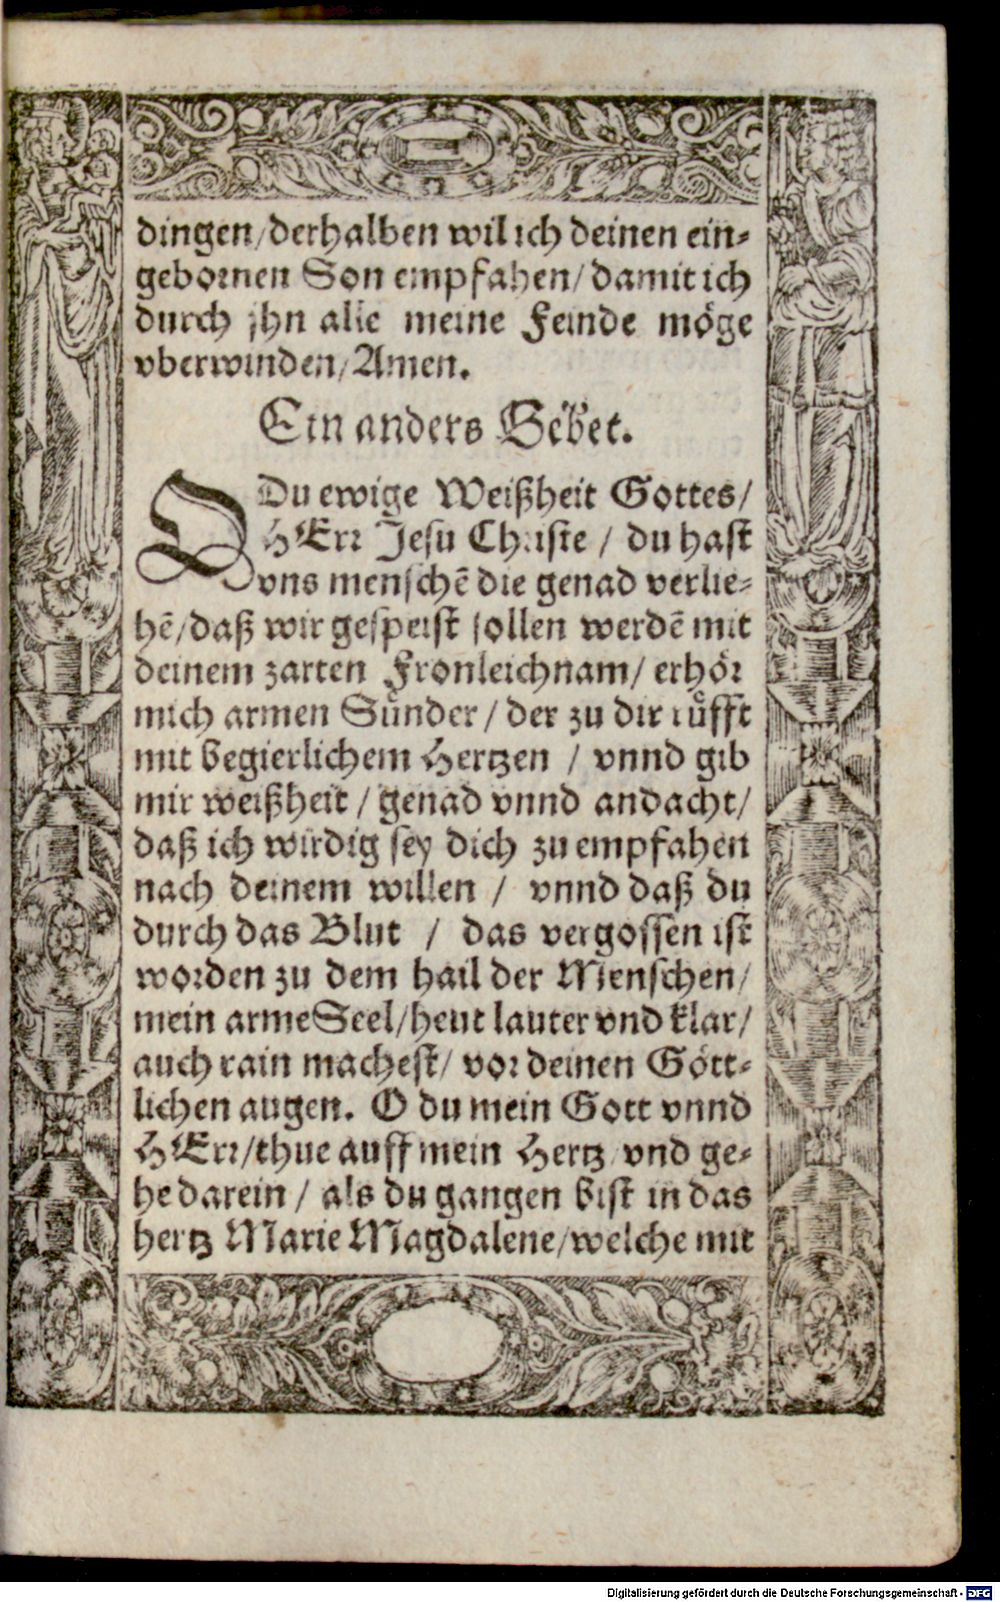 dingen/derhalben wil ich deinen ein⸗
gebornen Son empfahen/damit ich
durch jhn alle meine Feinde möge
vberwinden/Amen.
Ein anders Gebet.
O Du ewige Weißheit Gottes/
HErr Jesu Christe / du hast
vns menschē die genad verlie⸗
hē/daß wir gespeist sollen werdē mit
deinem zarten Fronleichnam/ erhör
mich armen Sünder / der zu dir rüfft
mit begierlichem Hertzen / vnnd gib
mir weißheit / genad vnnd andacht/
daß ich wirdig sey dich zu empfahen
nach deinem willen / vnnd daß du
durch das Blut / das vergossen ist
worden zu dem hail der Menschen/
mein arme Seel/heut lauter vnd klar/
auch rain machest/ vor deinen Gött⸗
lichen augen. O du mein Gott vnnd
HErr/thue auff mein Hertz/vnd ge⸗
he darein / als du gangen bist in das
hertz Marie Magdalene/welche mit
Digitalisierung gefördert durch die Deutsche Forschungsgemeinschaft - DFG